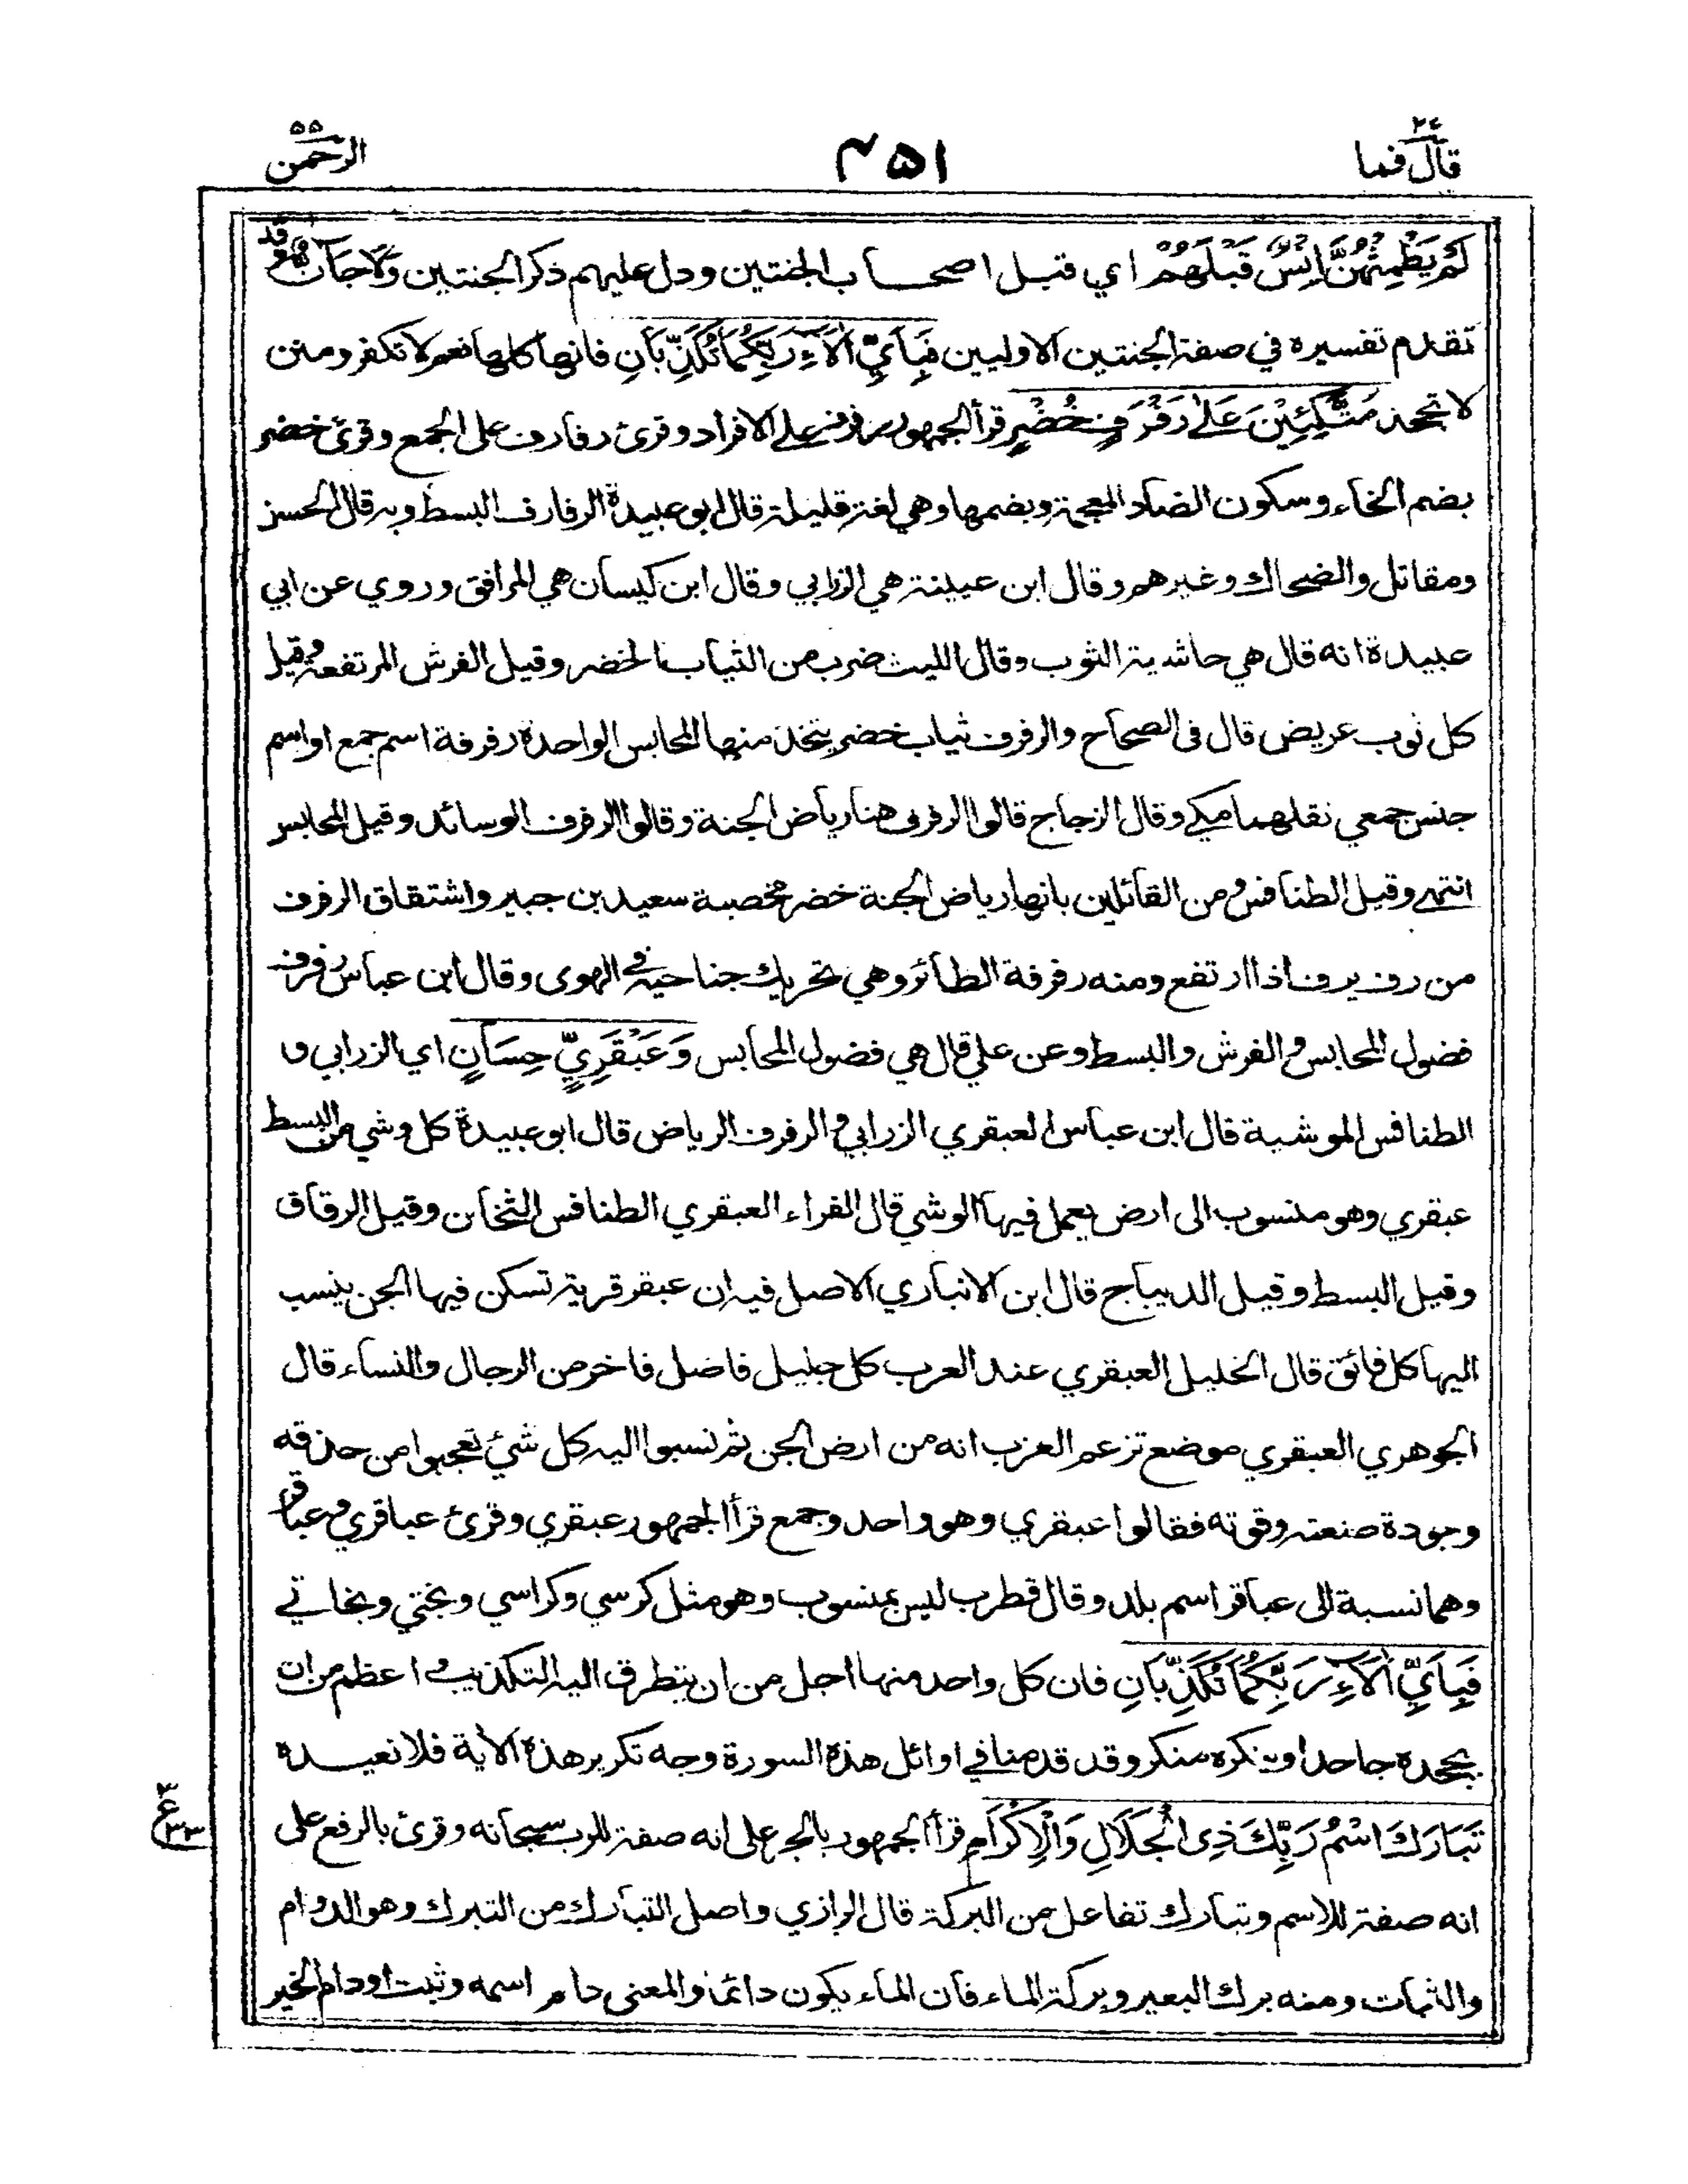 قال فما ۲۷
۴۵۱
الرحمن ۵۵
لَمْ يَطْمِثْهُنَّ إِنْسٌ قَبْلَهُمْ اي قبل اصحاب الجنتين ودل عليهم ذكر الجنتين وَلَا جَانٌّ وقد
تقدم تفسيره في صفة الجنتين الاوليين فَبِأَيِّ آلَاءِ رَبِّكُمَا تُكَذِّبَانِ فانها كلها نعم لا تكفر ومنن
لا تجحد مُتَّكِئِيْنَ عَلٰى رَفْرَفٍ خُضْرٍ قرأ الجمهور رفرف على الافراد وقرئ رفارف على الجمع وقرئ خضر
بضم الخاء وسكون الضاد المعجمة وبضمها وهي لغة قليلة قال ابو عبيدة الرفارف البسط وبه قال الحسن
ومقاتل والضحاك وغيرهم وقال ابن عيينة هي الزرابي وقال ابن كيسان هي المرافق وروي عن ابي
عبيدة انه قال هي حاشية الثوب وقال الليث ضرب من الثياب الخضر وقيل الفرش المرتفعة وقيل
كل ثوب عريض قال فى الصحاح والرفرف ثياب خضر يتخذ منها المحابس الواحدة رفرفة اسم جمع او اسم
جنس جمعي نقلهما مكي وقال الزجاج قالوا الرفرف هنا رياض الجنة وقالوا الرفرف الوسائد وقيل المحابس
انتهى وقيل الطنافس ومن القائلين بانها رياض الجنة خضر مخصبة سعيد بن جبير واشتقاق الرفرف
من رف يرف اذا ارتفع ومنه رفرفة الطائر وهي تحريك جناحيه في الهوى وقال ابن عباس رفرف
فضول المحابس والفرش والبسط وعن علي قال هي فضول المحابس وَعَبْقَرِيٍّ حِسَانٍ اي الزرابي و
الطنافس الموشية قال ابن عباس العبقري الزرابي والرفرف الرياض قال ابو عبيدة كل وشي من البسط
عبقري وهو منسوب الى ارض يعمل فيها الوشي قال الفراء العبقري الطنافس الثخان وقيل الرقاق
وقيل البسط وقيل الديباج قال ابن الانباري الاصل فيه ان عبقر قرية تسكن فيها الجن ينسب
اليها كل فائق قال الخليل العبقري عند العرب كل جليل فاضل فاخر من الرجال والنساء قال
الجوهري العبقري موضع تزعم العرب انه من ارض الجن ثم نسبوا اليه كل شئ تعجبوا من حذقه
وجودة صنعته وقوته فقالوا عبقري وهو واحد وجمع قرأ الجمهور عبقري وقرئ عباقري وعباقر
وهما نسبة الى عباقر اسم بلد وقال قطرب ليس بمنسوب وهو مثل كرسي وكراسي وبختي وبخاتي
فَبِأَيِّ آلَاءِ رَبِّكُمَا تُكَذِّبَانِ فان كل واحد منها اجل من ان يتطرق اليه التكذيب واعظم من ان
يجحده جاحد او ينكره منكر وقد قدمنا في اوائل هذه السورة وجه تكرير هذه الآية فلا نعيده
تَبَارَكَ اسْمُ رَبِّكَ ذِى الْجَلَالِ وَالْإِكْرَامِ قرأ الجمهور بالجر على انه صفة للرب سبحانه وقرئ بالرفع على
انه صفة للاسم وتبارك تفاعل من البركة قال الرازي واصل التبارك من التبرك وهو الدوام
والثبات ومنه برك البعير وبركة الماء فان الماء يكون دائما والمعنى دام اسمه وثبت او دام الخير